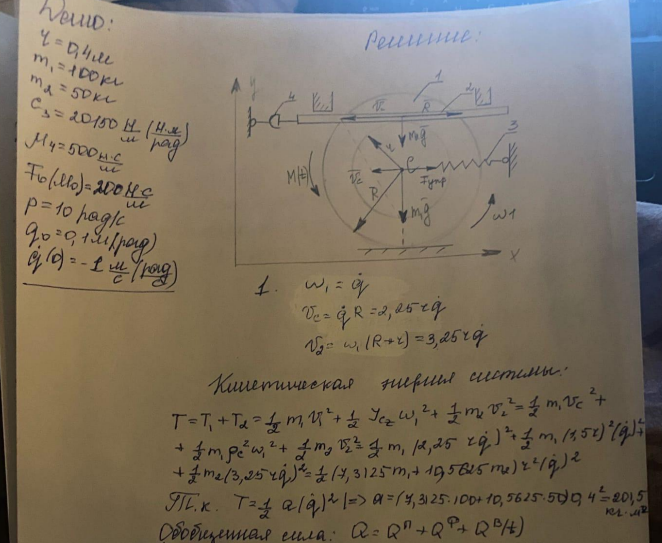 Дано:
r = 0,4 м
m₁ = 100 кг
m₂ = 50 кг
c₃ = 20150 Н/м (Н·м/рад)
μ₄ = 500 Н·с/м
F₀(M₀) = 200 Н·с/м
p = 10 рад/с
q₀ = 0,1 м (рад)
q̇(0) = -1 м/с (рад)
Решение:
y
4
1
2
3
V₂
R
m₂g
r
C
V̄c
Fупр
M(t)
R
m₁g
ω1
x
1. ω₁ = q̇
Vc = q̇R = 2,25 rq̇
V₂ = ω₁(R+r) = 3,25 rq̇
Кинетическая энергия системы:
T = T₁ + T₂ = 1/2 m₁V₁² + 1/2 Jcz ω₁² + 1/2 m₂ V₂² = 1/2 m₁Vc² +
+ 1/2 m₁ρc²ω₁² + 1/2 m₂ V₂² = 1/2 m₁(2,25 rq̇)² + 1/2 m₁(1,5r)²(q̇)² +
+ 1/2 m₂(3,25rq̇)² = 1/2 (7,3125 m₁ + 10,5625 m₂) r²(q̇)²
Т.к. T = 1/2 a(q̇)² |=> a = (7,3125·100 + 10,5625·50)0,4² = 201,5 кг·м²
Обобщенная сила: Q = Qᴾ + Qᶲ + Qᴮ(t)